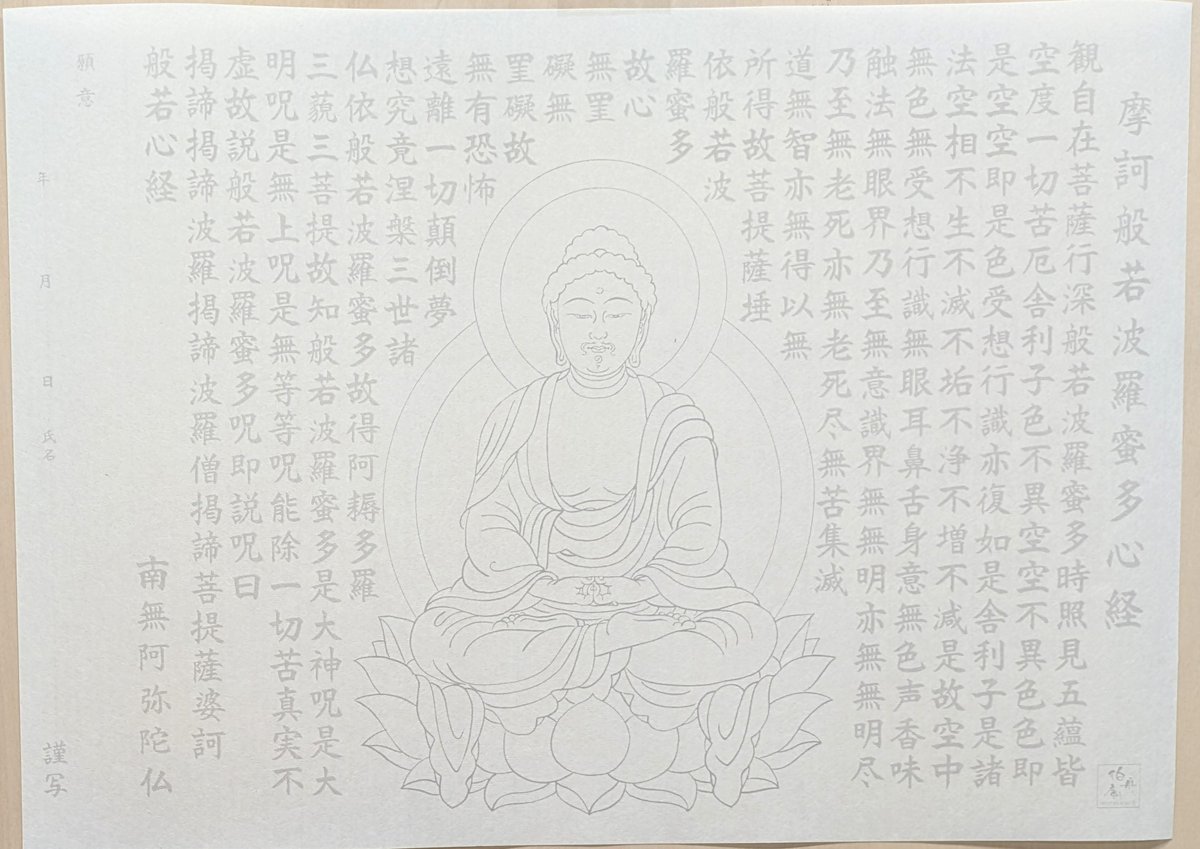 摩訶般若波羅蜜多心経
観自在菩薩行深般若波羅蜜多時照見五蘊皆
空度一切苦厄舎利子色不異空空不異色色即
是空空即是色受想行識亦復如是舎利子是諸
法空相不生不滅不垢不浄不増不減是故空中
無色無受想行識無眼耳鼻舌身意無色声香味
触法無眼界乃至無意識界無無明亦無無明尽
乃至無老死亦無老死尽無苦集滅
道無智亦無得以無
所得故菩提薩埵
依般若波
羅蜜多
故心
無罣
礙無
罣礙故
無有恐怖
遠離一切顛倒夢
想究竟涅槃三世諸
仏依般若波羅蜜多故得阿耨多羅
三藐三菩提故知般若波羅蜜多是大神呪是大
明呪是無上呪是無等等呪能除一切苦真実不
虚故説般若波羅蜜多呪即説呪曰
掲諦掲諦波羅掲諦波羅僧掲諦菩提薩婆訶
般若心経
南無阿弥陀仏
願意
年 月 日 氏名 謹写